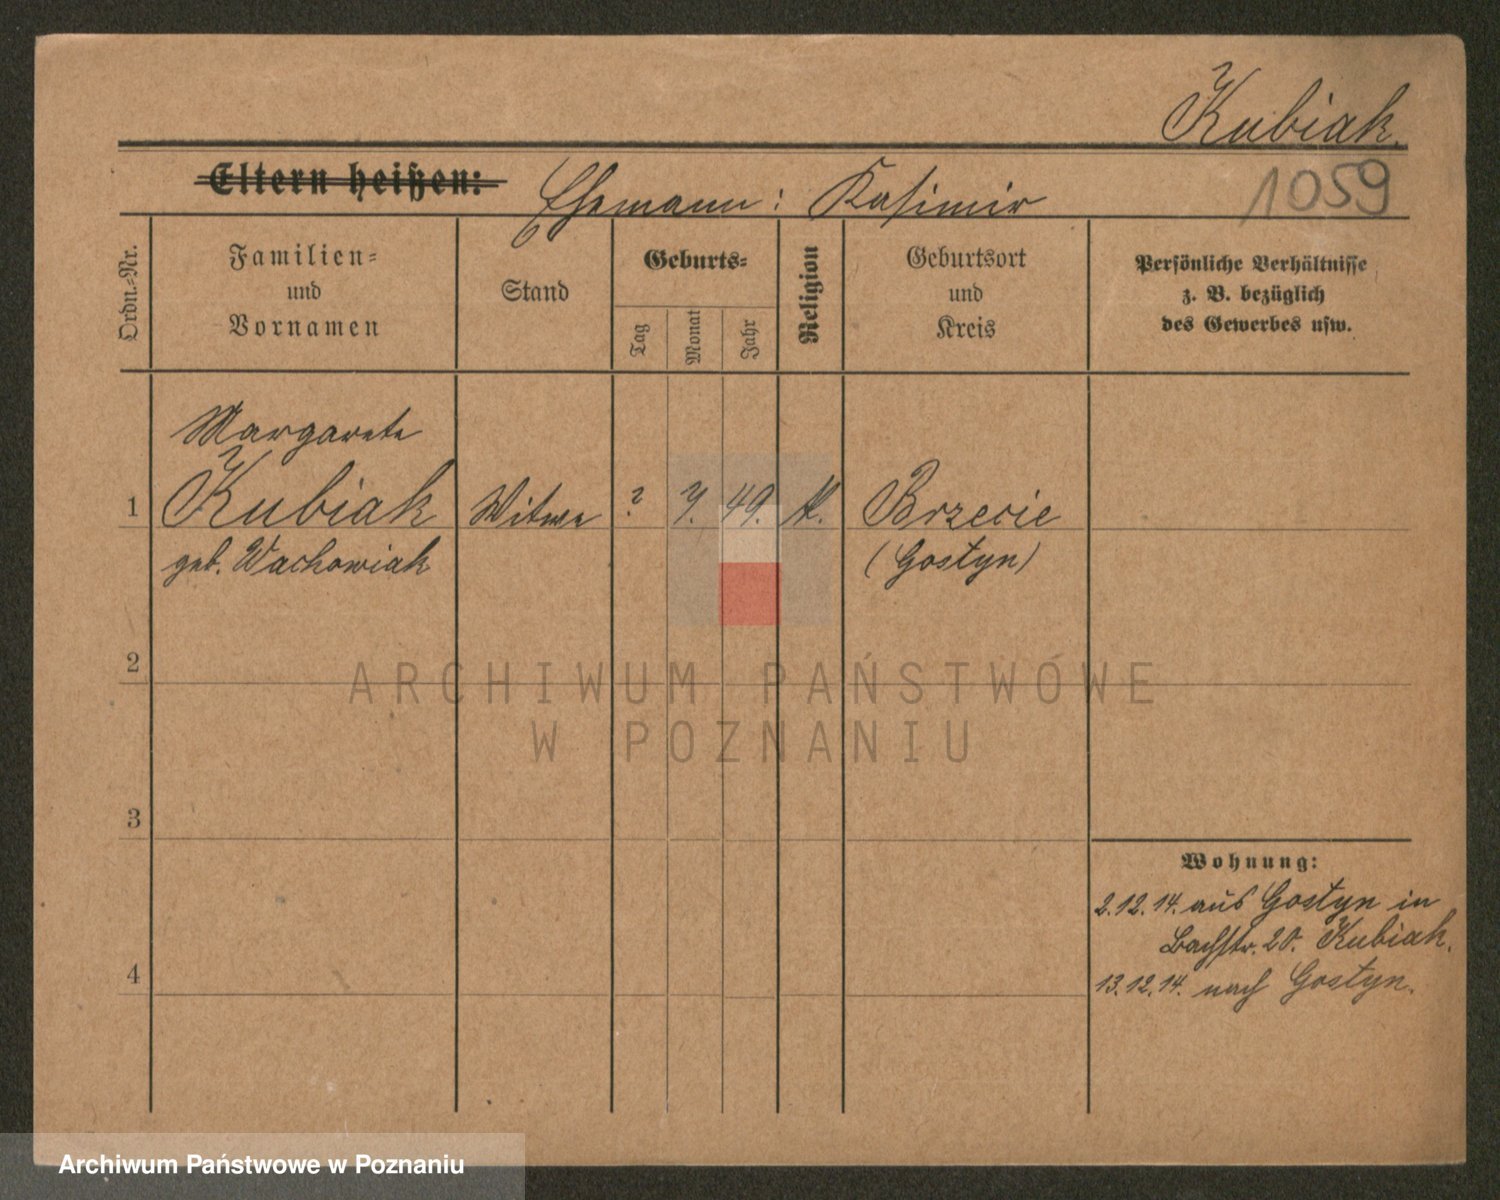 Kubiak.
Eltern heißen: Ehemann: Kasimir
1059
Ordn.-Nr.
Familien-
und
Vornamen
Stand
Geburts-
Tag
Monat
Jahr
Religion
Geburtsort
und
Kreis
Persönliche Verhältnisse
z. B. bezüglich
des Gewerbes usw.
Margarete
1 Kubiak Witwe ? 7. 49. Brzecie
geb. Wachowiak (Gostyn)
2
ARCHIWUM PAŃSTWÓWE
W POZNANIU
3
Wohnung:
2.12.14. aus Gostyn in
Bachstr. 20. Kubiak.
4
13.12.14. nach Gostyn.
Archiwum Państwowe w Poznaniu